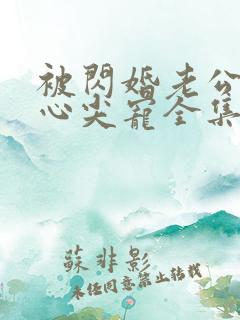 被閃婚老公
心尖寵全集
蘇非影
未經同意禁止轉載